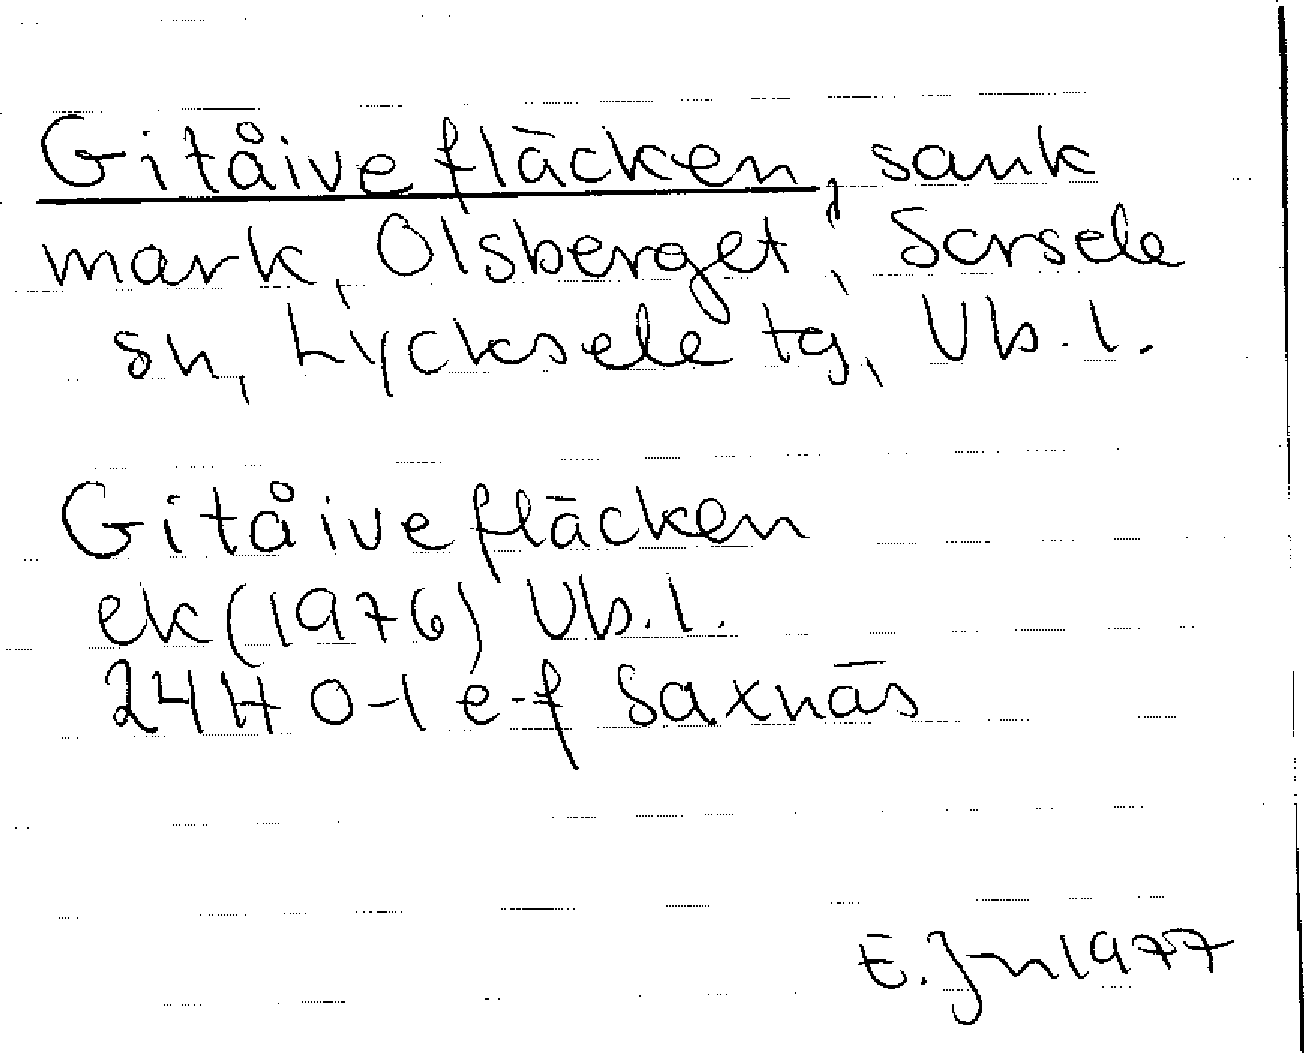 Gitåivefläcken, sank
mark, Olsberget, Sorsele
sn, Lycksele tg, Vb. l.
Gitåivefläcken
ek (1976) Vb. l.
24H 0-1 e-f Saxnäs
E. Jn 1977